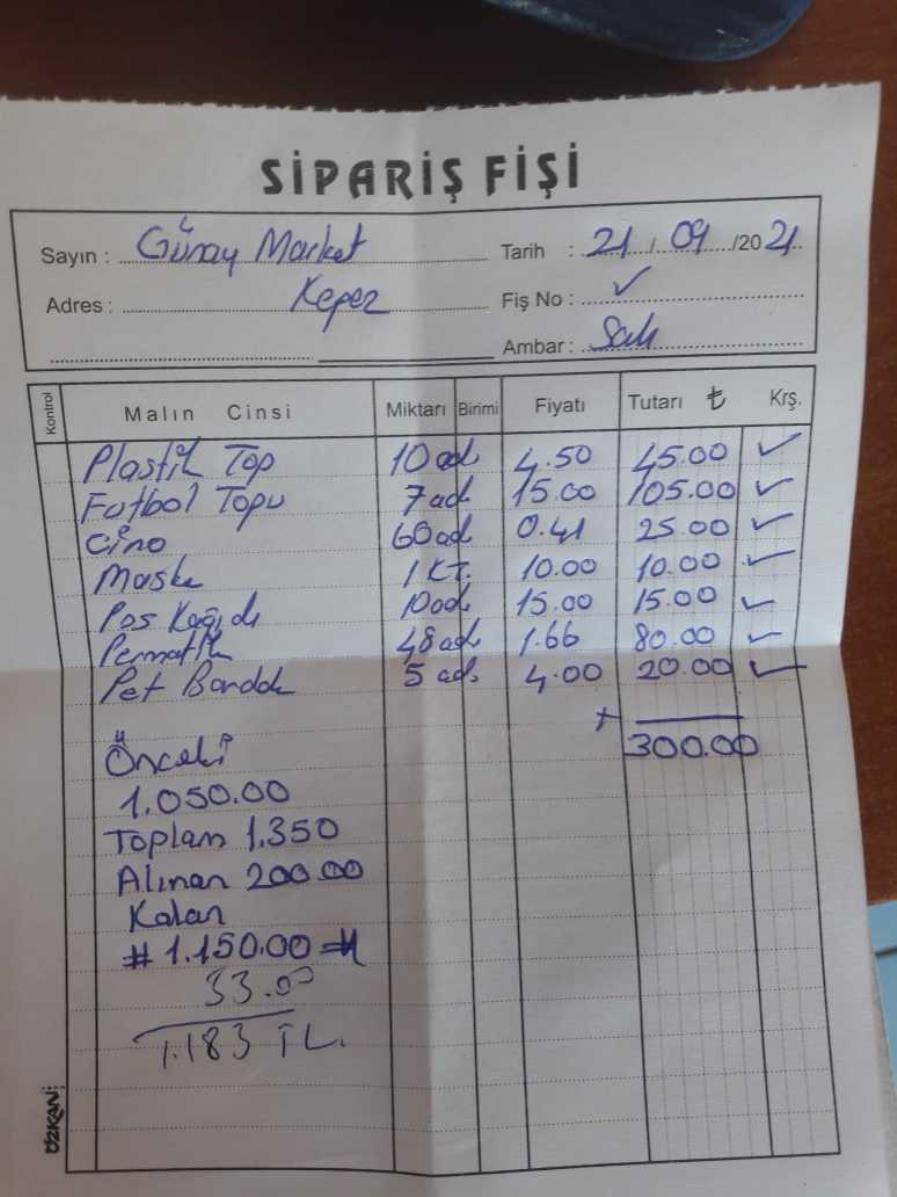 SİPARİŞ FİŞİ
Sayın : Günay Market Tarih : 21 / 09 /2021
Adres : Kepez Fiş No : ✓
Ambar : Salı
Kontrol Malın Cinsi Miktarı Birimi Fiyatı Tutarı ₺ Krş.
Plastik Top 10 ad 4.50 45.00 ✓
Futbol Topu 7 ad 15.00 105.00 ✓
Cino 60 ad 0.41 25.00 ✓
Maske 1 KT. 10.00 10.00 ✓
Pos Kağıdı 10 ad 15.00 15.00 ✓
Permatik 48 ad 1.66 80.00 ✓
Pet Bardak 5 ad. 4.00 20.00 ✓
+ 300.00
Önceki
1.050.00
Toplam 1.350
Alınan 200.00
Kalan
# 1.150.00 #
33.00
1.183 TL.
ÖZKAN